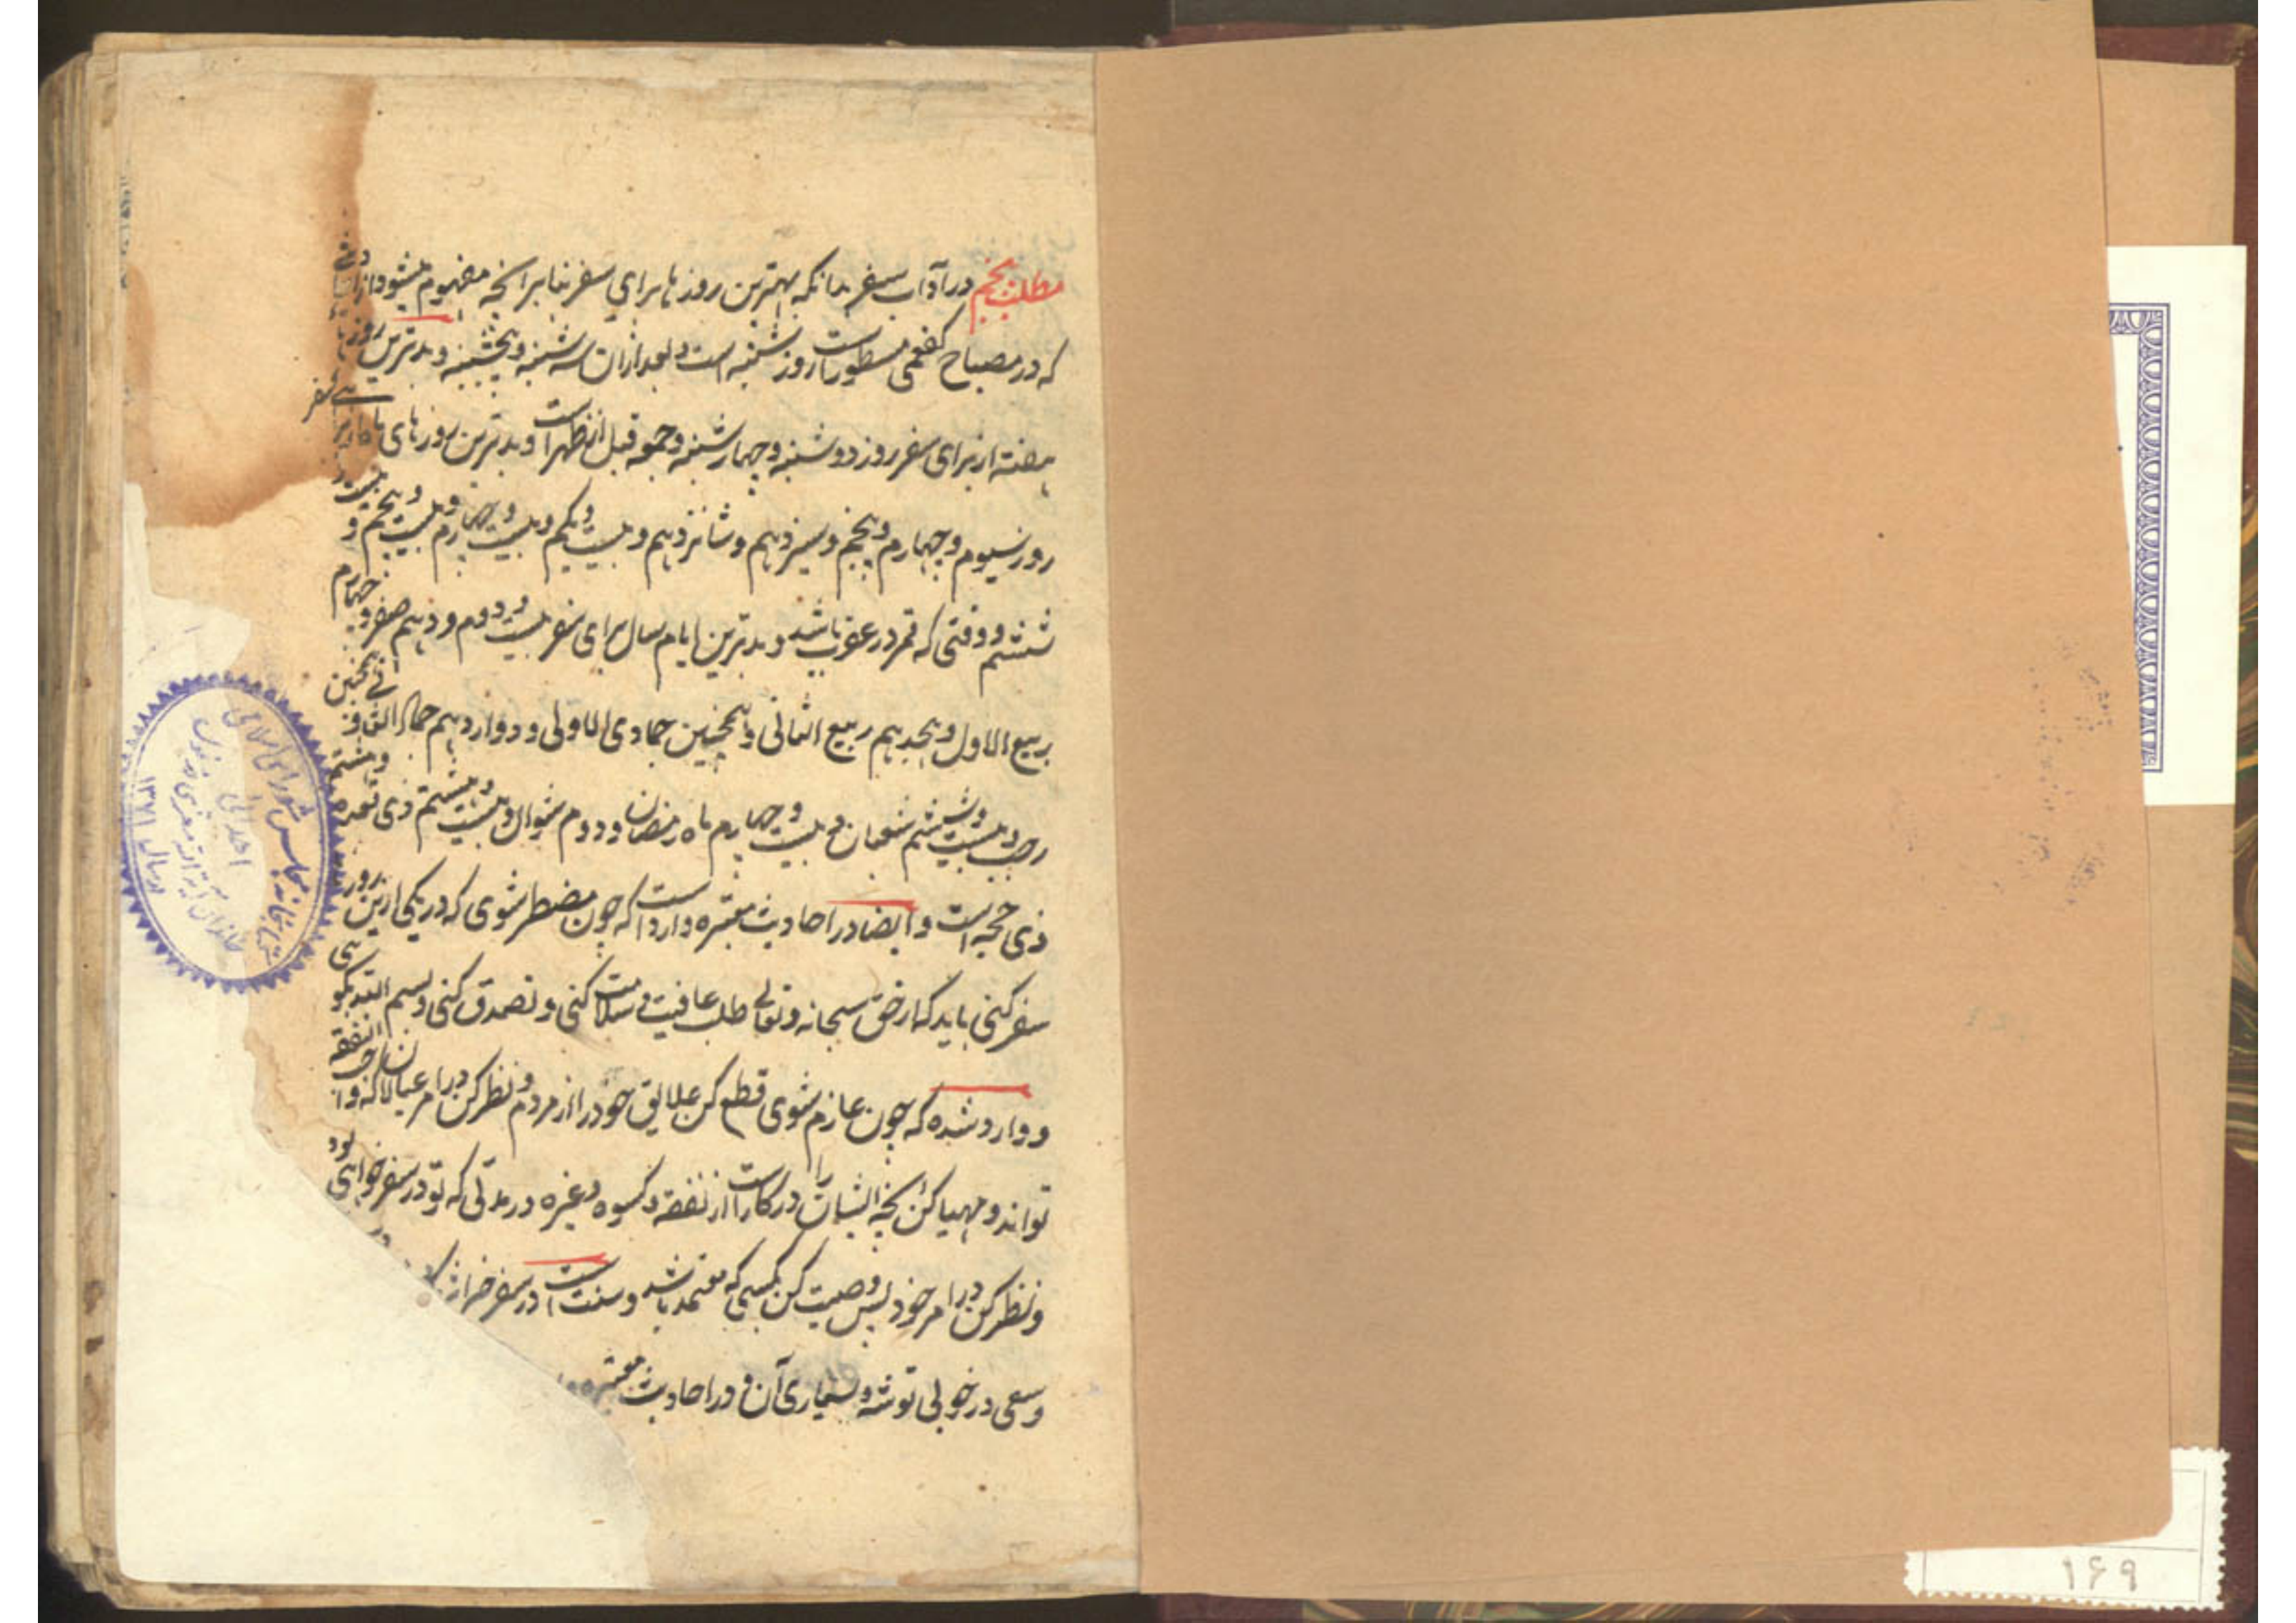 مطلب پنجم در آداب سفر بدانکه بهترین روزها برای سفر بنا بر آنچه مفهوم میشود از
که در مصباح کفعمی مسطور است روز شنبه است و بعد از آن سه شنبه و پنجشنبه و بدترین روزهای
هفته از برای سفر روز دوشنبه و چهارشنبه و جمعه قبل از ظهر است و بدترین روزهای ماه از برای سفر
روز سیوم و چهارم و پنجم و سیزدهم و شانزدهم و بیست و یکم و بیست و چهارم و بیست و پنجم و بیست و
ششم و وقتی که قمر در عقرب باشد و بدترین ایام سال برای سفر بیست و دوم و دهم صفر و چهارم
ربیع الاول و هیجدهم ربیع الثانی و همچنین جمادی الاولی و دوازدهم جماد الثانی و همچنین
رجب و بیست و ششم شعبان و بیست و چهارم ماه رمضان و دوم شوال و بیست و هشتم ذی قعده و هشتم
ذی حجه است و ایضا در احادیث معتبره وارد است که چون مضطر شوی که در یکی از این روزها
سفر کنی باید که از حق سبحانه و تعالی طلب عافیت و سلامت کنی و تصدق کنی و بسم الله بگویی
و وارد شده که چون عازم شوی قطع کن علایق خود را از مردم و نظر کن در امر عیالان
تواند و مهیا کن آنچه ایشان را در کار است از نفقه و کسوه و غیره در مدتی که تو در سفر خواهی بود
و نظر کن در امر خود پس وصیت کن بکسی که معتمد باشد و سنت است در سفر
و سعی در خوبی توشه و بسیاری آن و در احادیث معتبره
کتابخانه مجلس شورای اسلامی
اهدائی
سال ۱۳۷۱
۱۶۹